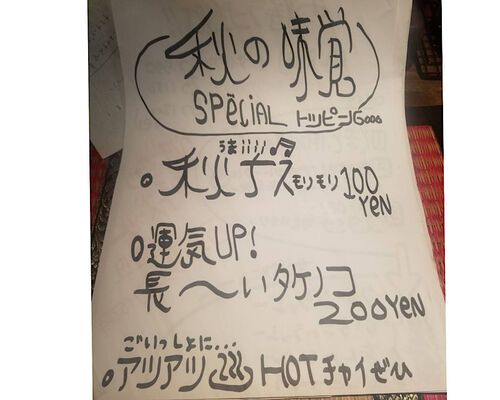 秋の味覚
SPECIAL トッピーNG...
うまiiii♬
○秋ナス モリモリ 100YEN
○運気UP!
長〜いタケノコ
200YEN
ごいっしょに...
○アツアツ HOTチャイぜひ